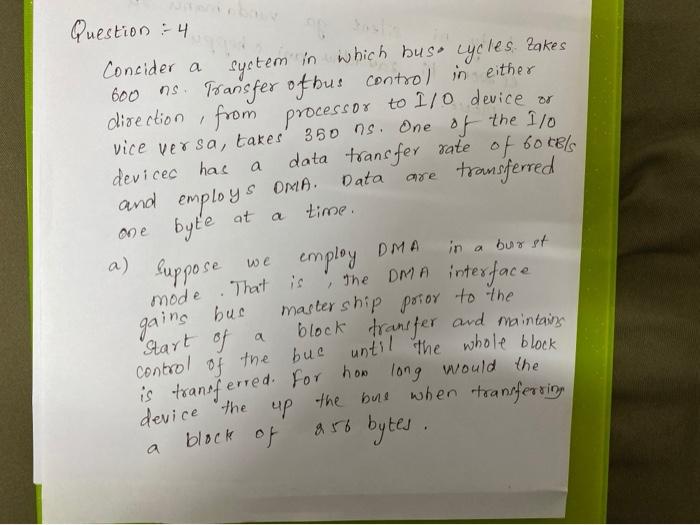 Question :- 4
Concider a system in which bus cycles takes
600 ns. Transfer of bus control in either
direction, from processor to I/O device or
vice versa, takes 350 ns. One of the I/O
devices has a data transfer rate of 60 KB/s
and employs DMA. Data are transferred
one byte at a time.
a) Suppose we employ DMA in a burst
mode. That is, the DMA interface
gains bus mastership prior to the
start of a block transfer and maintains
control of the bus until the whole block
is transferred. For how long would the
device the up the bus when transferring
a block of 256 bytes.